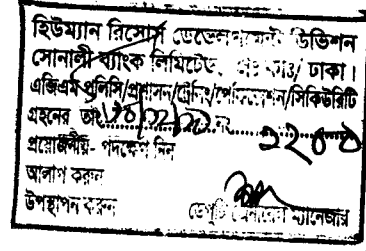 হিউম্যান রিসোর্স ডেভেলপমেন্ট ডিভিশন
সোনালী ব্যাংক লিমিটেড, ঢাকা।
এজিএম পলিসি/প্রশাসন/ট্রেনিং/সিকিউরিটি
গ্রহনের তাং
প্রয়োজনীয়- পদক্ষেপ নিন
আলাপ করুন
উপস্থাপন করুন
ডেপুটি জেনারেল ম্যানেজার